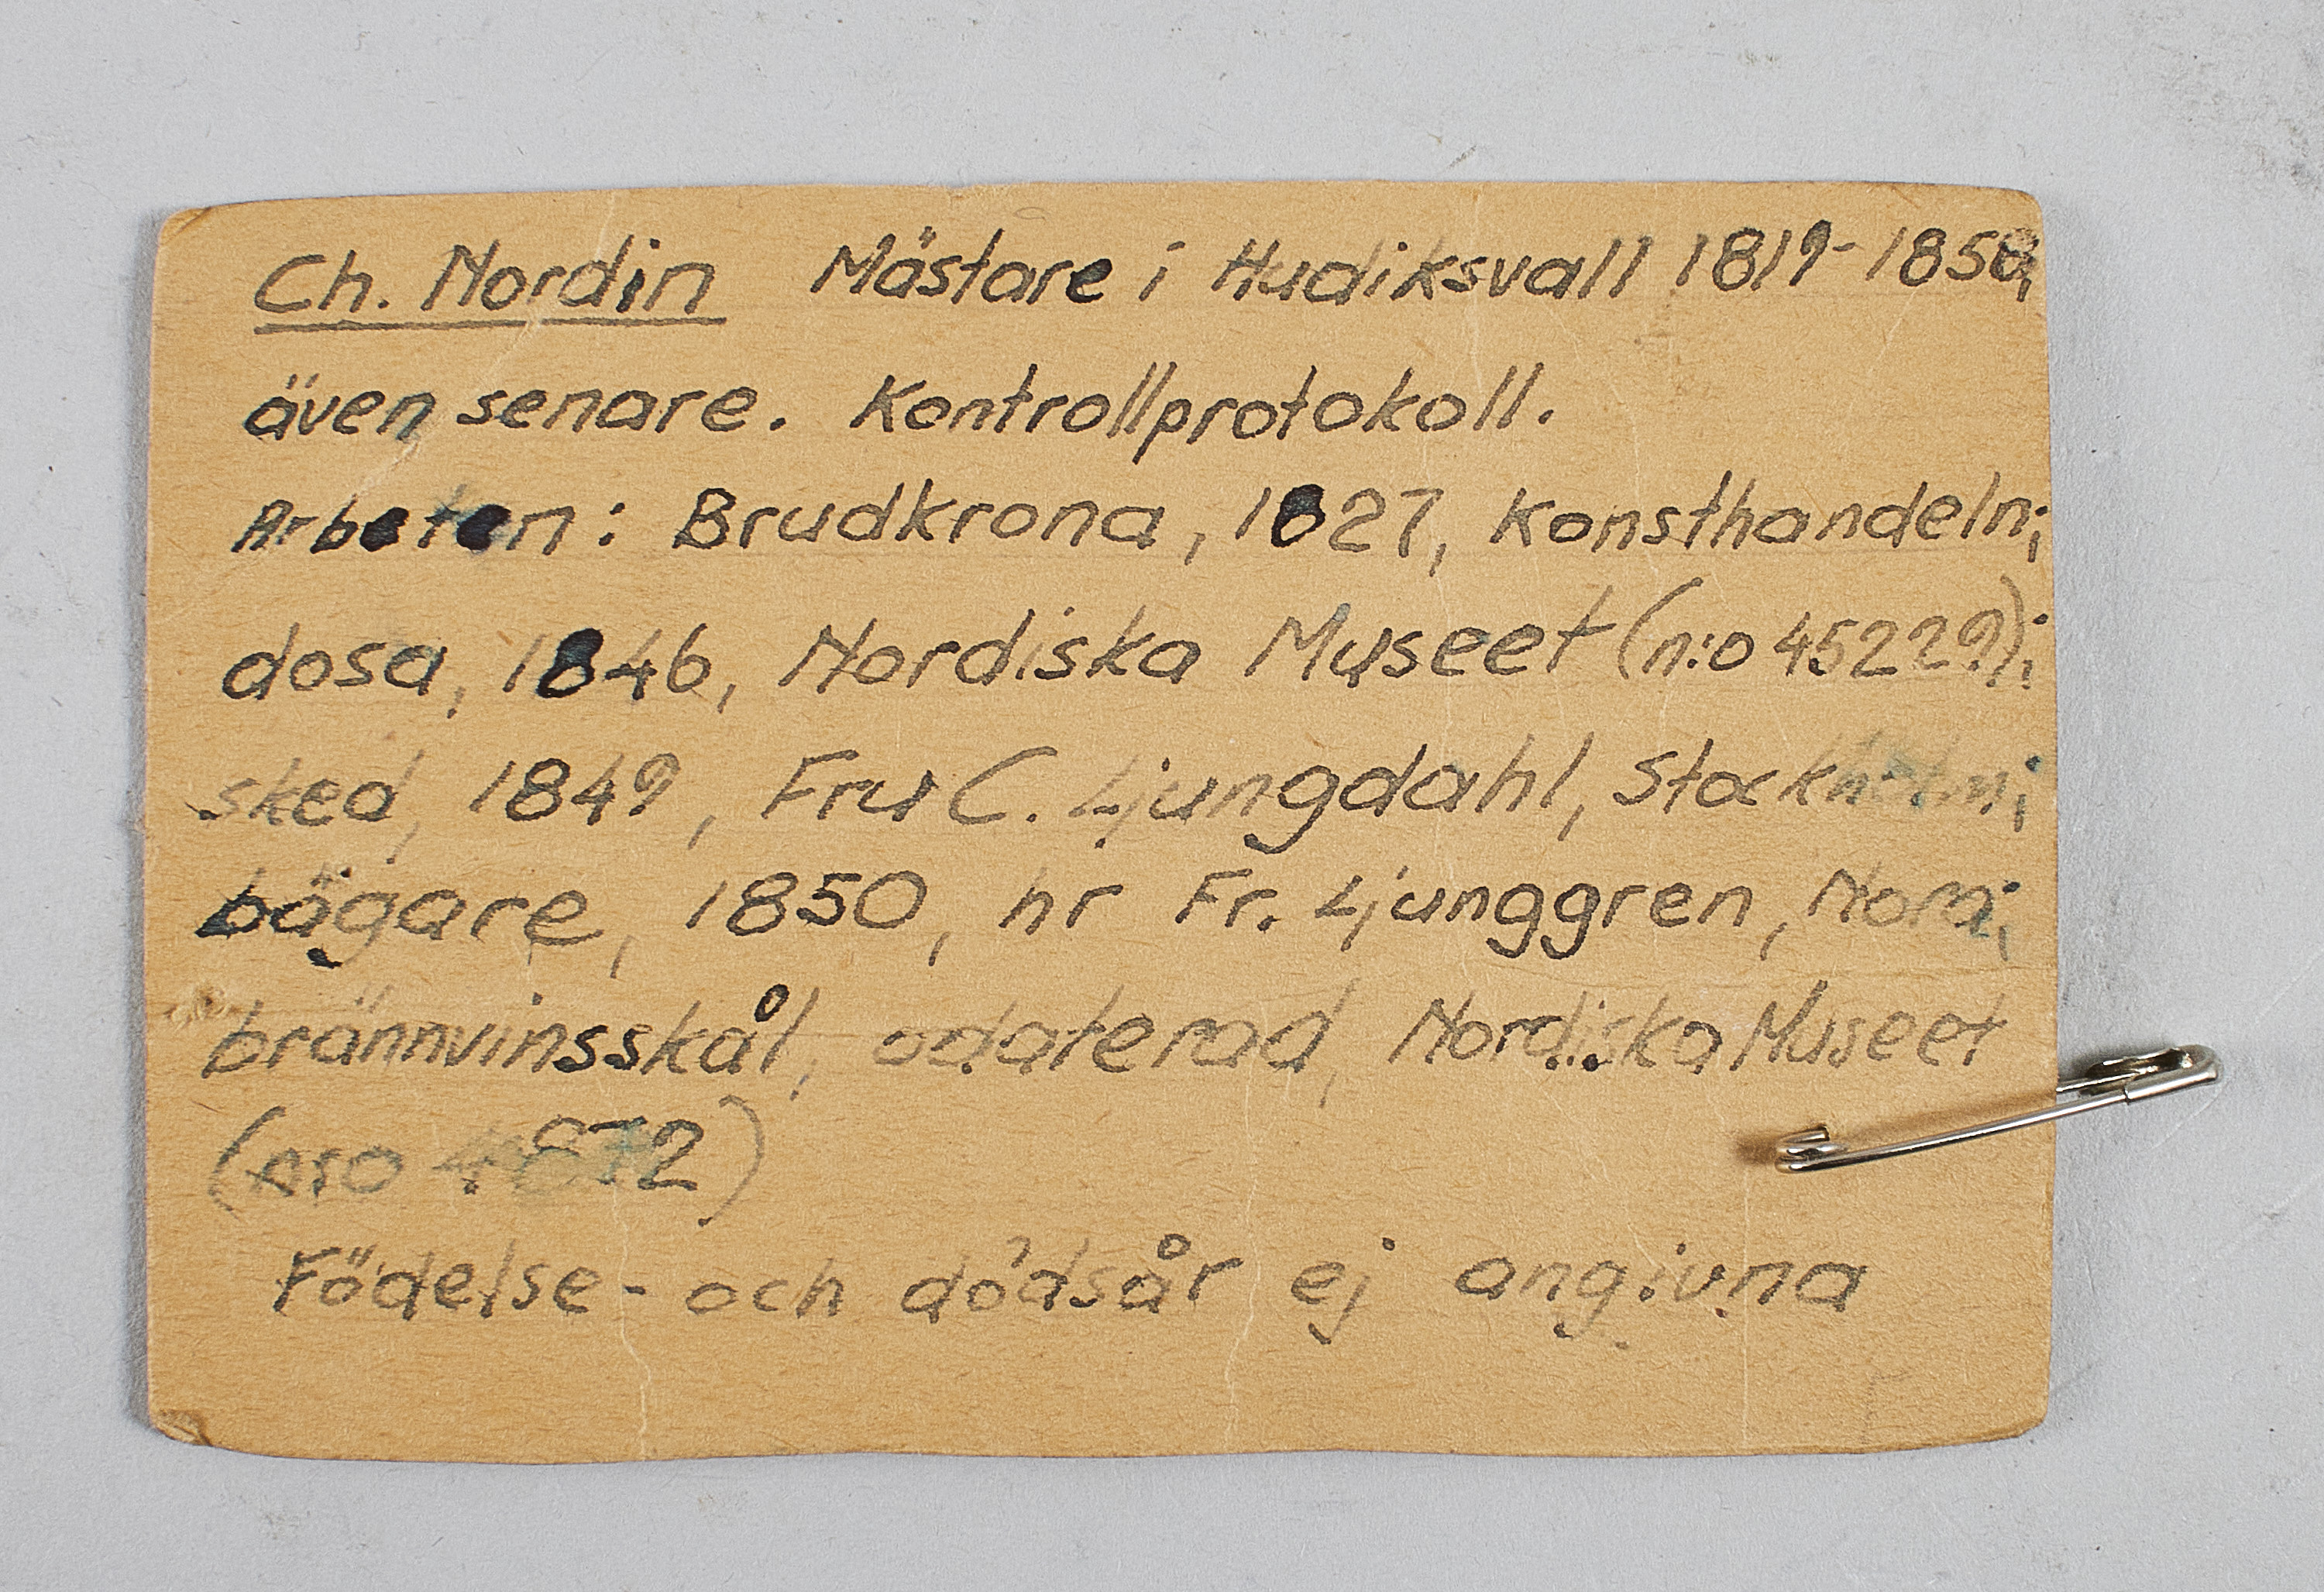 Ch. Nordin Mästare i Hudiksvall 1819-1850,
även senare. Kontrollprotokoll.
Arbeten: Brudkrona, 1827, Konsthandeln;
dosa, 1846, Nordiska Museet (n:o 45229);
sked, 1849, Fru C. Ljungdahl, Stockholm;
bägare, 1850, hr Fr. Ljunggren, Nora;
brännvinsskål, odaterad, Nordiska Museet
(n:o 4872)
Födelse- och dödsår ej angivna